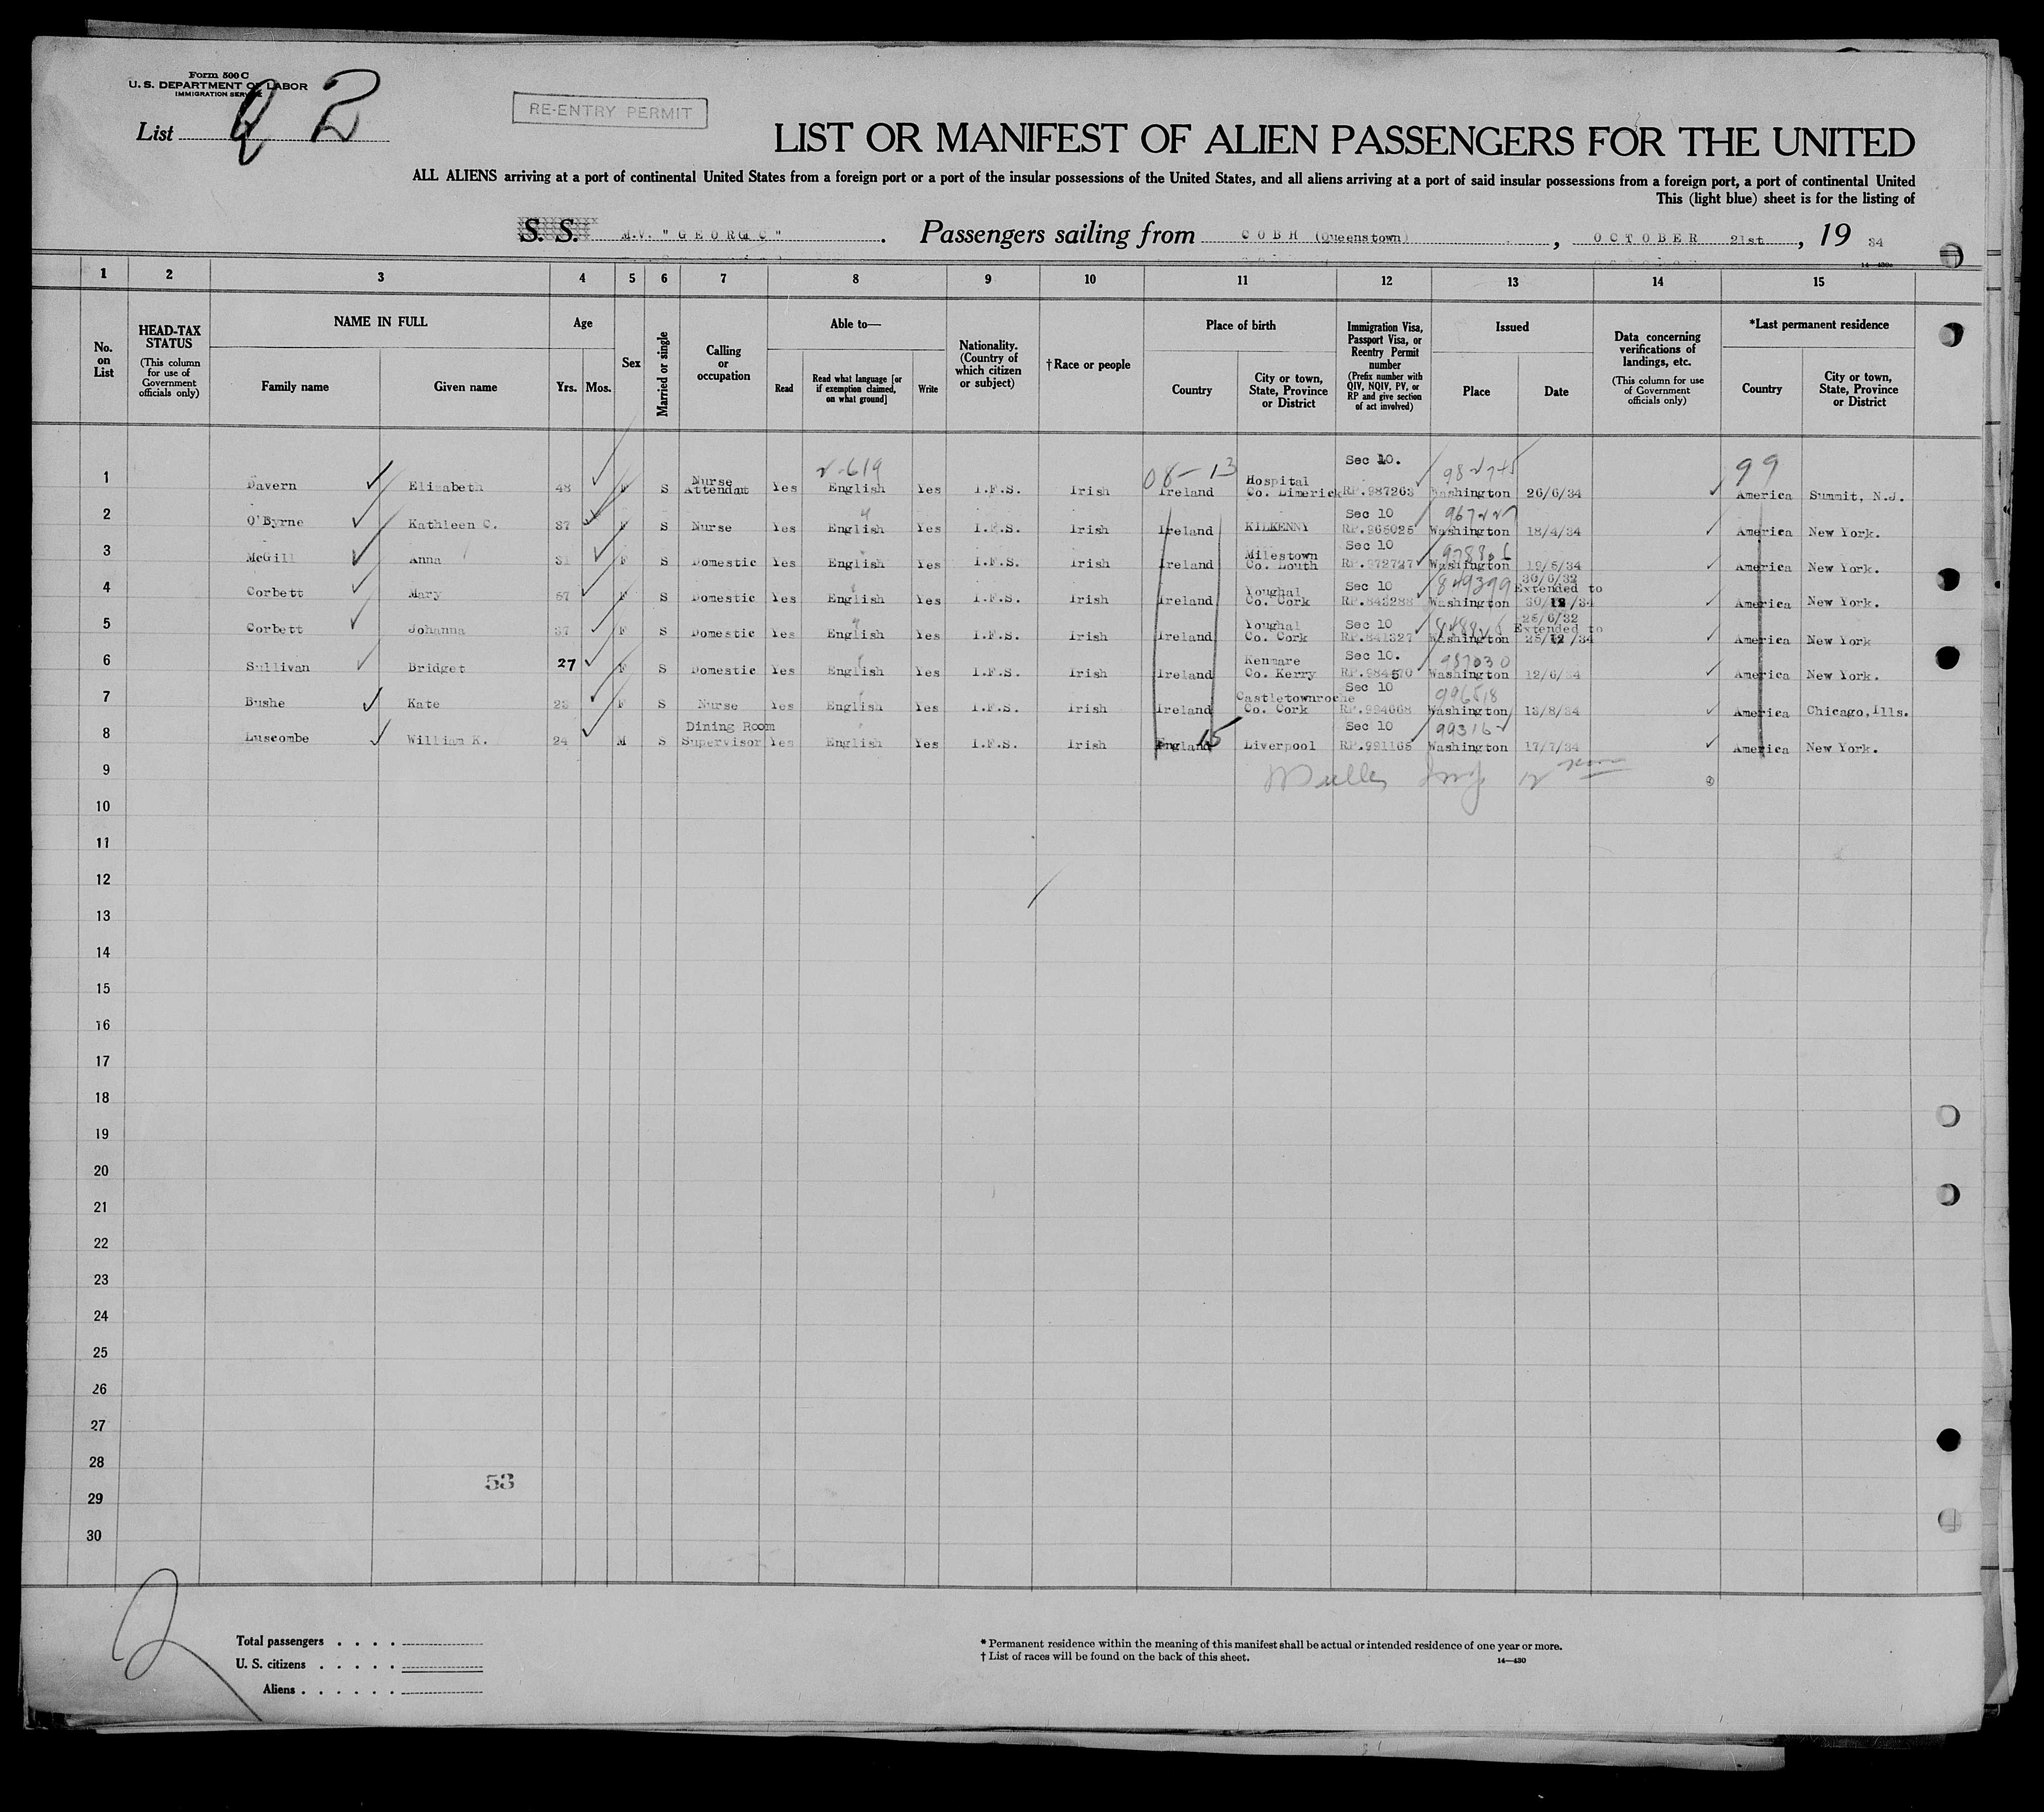 Form 500 C
U. S. DEPARTMENT OF LABOR
IMMIGRATION SERVICE
List 2
RE-ENTRY PERMIT
LIST OR MANIFEST OF ALIEN PASSENGERS FOR THE UNITED
ALL ALIENS arriving at a port of continental United States from a foreign port or a port of the insular possessions of the United States, and all aliens arriving at a port of said insular possessions from a foreign port, a port of continental United
This (light blue) sheet is for the listing of
S. S. M.V. "GEORGIC". Passengers sailing from COBH (Queenstown), OCTOBER 21st, 19 34
1 2 3 4 5 6 7 8 9 10 11 12 13 14 15
No. on List
HEAD-TAX STATUS (This column for use of Government officials only)
NAME IN FULL
Family name Given name
Age
Yrs. Mos.
Sex
Married or single
Calling or occupation
Able to—
Read Read what language [or if exemption claimed, on what ground] Write
Nationality. (Country of which citizen or subject)
† Race or people
Place of birth
Country City or town, State, Province or District
Immigration Visa, Passport Visa, or Reentry Permit number (Prefix number with QIV, NQIV, PV, or RP and give section of act involved)
Issued
Place Date
Data concerning verifications of landings, etc. (This column for use of Government officials only)
*Last permanent residence
Country City or town, State, Province or District
2-619 08-13 99
1 Davern Elizabeth 48 F S Nurse Attendant Yes English Yes I.F.S. Irish Ireland Hospital Co. Limerick Sec 10. RP.987263 982745 Washington 26/6/34 America Summit, N.J.
2 O'Byrne Kathleen C. 37 F S Nurse Yes English Yes I.F.S. Irish Ireland KILKENNY Sec 10 RP.965025 967227 Washington 18/4/34 America New York.
3 McGill Anna 31 F S Domestic Yes English Yes I.F.S. Irish Ireland Milestown Co. Louth Sec 10 RP.972727 978806 Washington 19/5/34 America New York.
4 Corbett Mary 57 F S Domestic Yes English Yes I.F.S. Irish Ireland Youghal Co. Cork Sec 10 RP.843288 849399 Washington 30/6/32 Extended to 30/12/34 America New York.
5 Corbett Johanna 37 F S Domestic Yes English Yes I.F.S. Irish Ireland Youghal Co. Cork Sec 10 RP.841327 Washington 25/6/32 Extended to 25/12/34 America New York
6 Sullivan Bridget 27 F S Domestic Yes English Yes I.F.S. Irish Ireland Kenmare Co. Kerry Sec 10. RP.984570 987030 Washington 12/6/34 America New York.
7 Bushe Kate 23 F S Nurse Yes English Yes I.F.S. Irish Ireland Castletownroche Co. Cork Sec 10 RP.994668 996518 Washington 13/8/34 America Chicago, Ills.
8 Luscombe William K. 24 M S Dining Room Supervisor Yes English Yes I.F.S. Irish England 15 Liverpool Sec 10 RP.991165 993162 Washington 17/7/34 America New York.
9
10
11
12
13
14
15
16
17
18
19
20
21
22
23
24
25
26
27
28
53
29
30
2
Total passengers
U. S. citizens
Aliens
* Permanent residence within the meaning of this manifest shall be actual or intended residence of one year or more.
† List of races will be found on the back of this sheet.
14—430